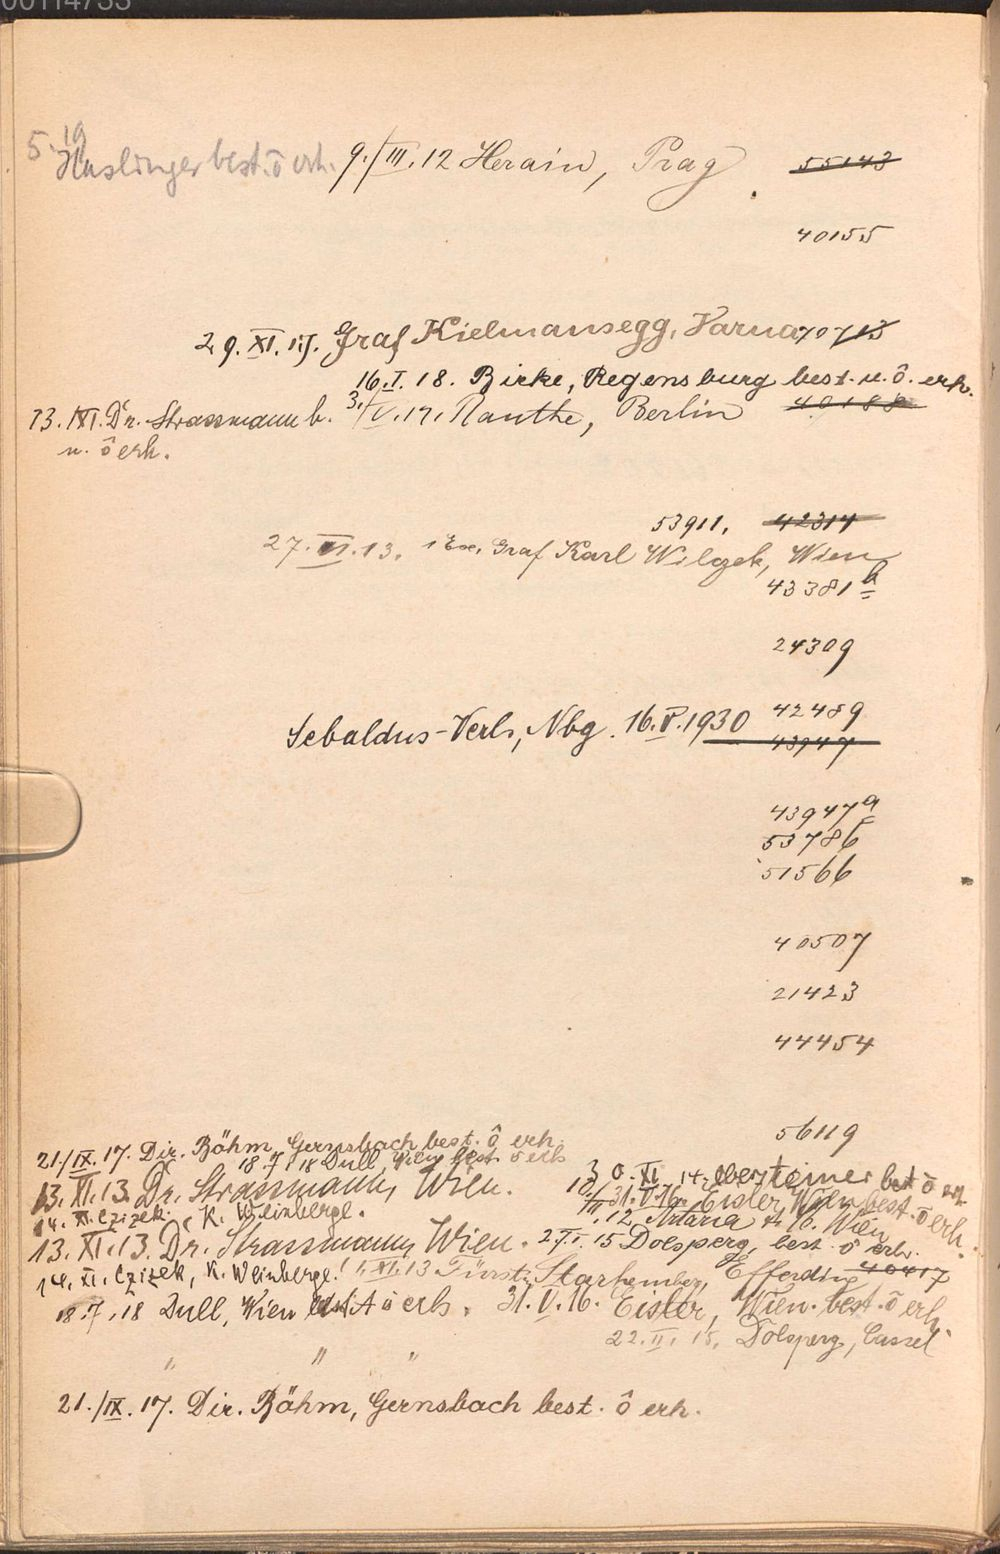 00114755
5. 19
Haslinger best. ō erh. 9./III.12 Herain, Prag 55143
40155
29. XI. 17. Graf Kielmansegg, Varna 70713
16. I. 18. Birke, Regensburg best. u. ô. erh.
13. XI. Dr. Strassmann b. 3./V.17. Manthe, Berlin 40188
u. ô erh.
53911, 42314
27. VI. 13. 1 Ex. Graf Karl Wilczek, Wien
43381 b
24309
42489
Sebaldus-Verl., Nbg. 16. V. 1930
43947
43947 a
53786
51566
40507
21423
44454
56119
21./IX. 17. Dir. Böhm, Gernsbach best. ô erh.
18.7.18 Dull, Wien best. ō erh
30. XI. 14. best ō erh
13. XI. 13. Dr. Strassmann, Wien.
31. V. 16. Eisler, Wien best. ō erh.
14. XI. Czizek, K. Weinberge.
10./III. 12 Artaria & Co. Wien
13. XI. 13. Dr. Strassmann, Wien. 15 Dolsperg, best. ō erh.
14. XI. Czizek, K. Weinberge! 1. XI. 13 Fürst Starhemberg, Efferding 40417
18.7.18 Dull, Wien ō erh. 31. V. 16. Eisler, Wien. best. ō erh.
22. II. 15. Dolsperg, Cassel
" " "
21./IX. 17. Dir. Böhm, Gernsbach best. ô erh.